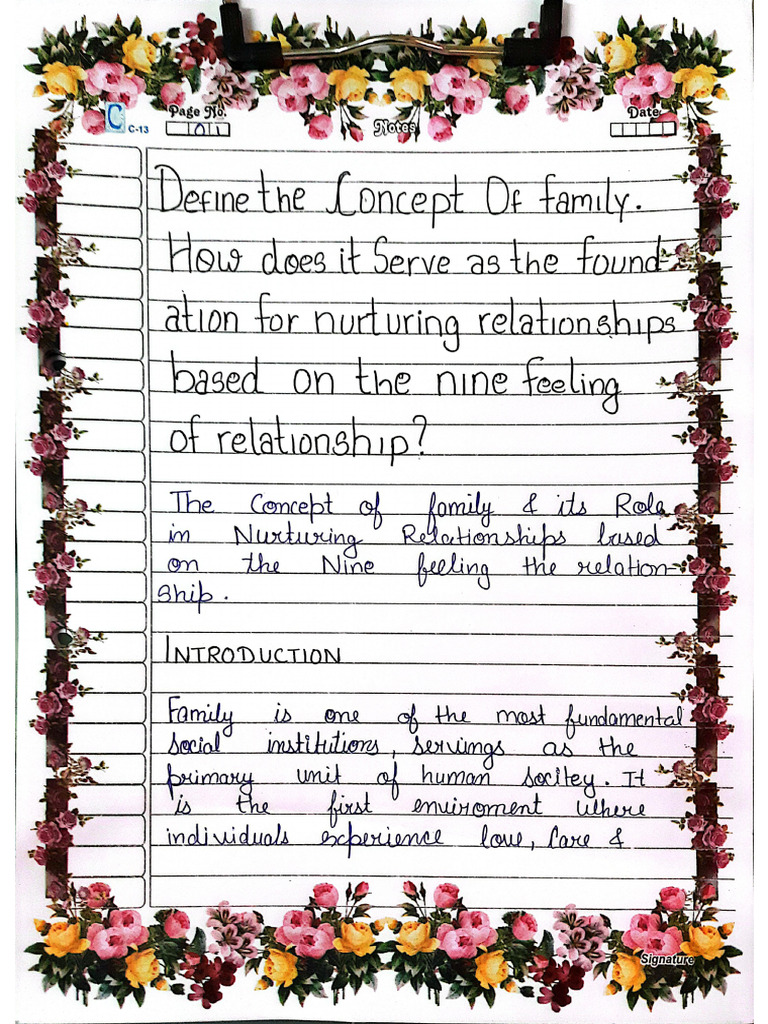 C C-13
Page No.
01
Notes
Date
Define the Concept Of family.
How does it Serve as the found-
ation for nurturing relationships
based on the nine feeling
of relationship?
The Concept of family & its Role
in Nurturing Relationships based
on the Nine feeling the relation-
ship.
INTRODUCTION
Family is one of the most fundamental
social institutions, servings as the
primary unit of human socitey. It
is the first enviroment where
individuals experience love, Care &
Signature